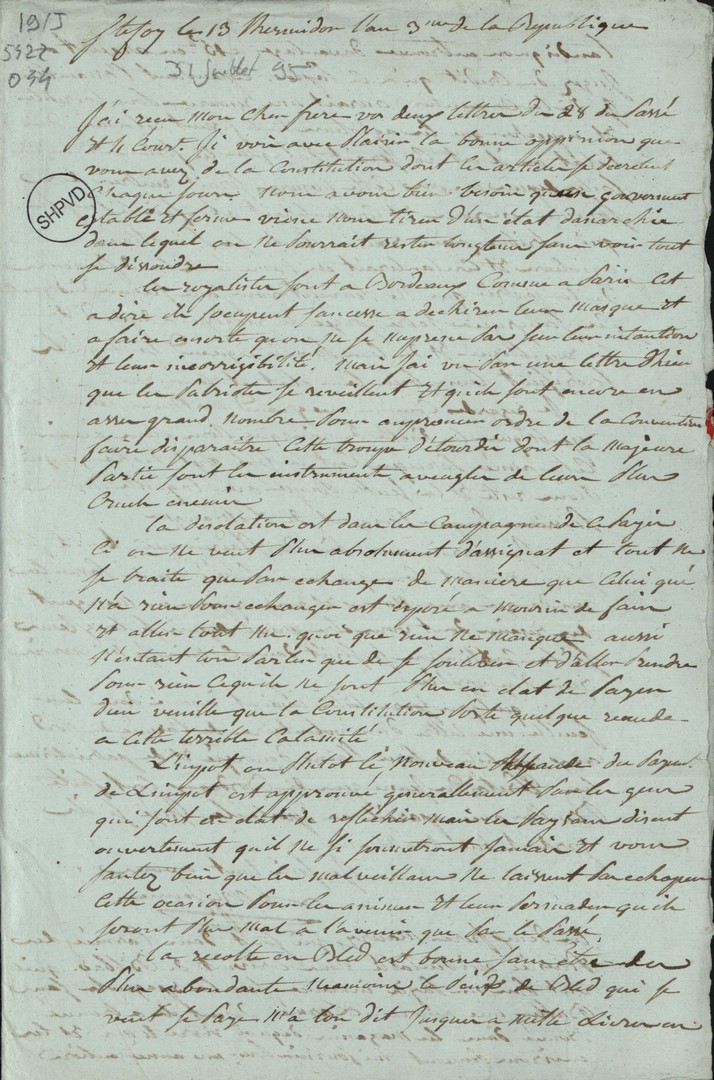 19 J
5422
034
Ste foy le 13 Thermidor l'an 3me de la Republique
31 Juillet 95
J'ai recu mon cher frere vos deux lettres du 28 du passé
et 4 Cour.t Ji voir avec plaisir la bonne oppinion que
vous avez de la Constitution dont les articles se decretent
Chaque jour. nous avons bien besoin qu'un gouvernement
SHPVD
stable et ferme viene nous tirer d'un état danarchie
dans lequel on ne pourrait rester longtems sans voir tout
se dissoudre
les royalistes sont a Bordeaux Comme a Paris Cet
a dire ils s'ocupent sancesse a dechirer leur masque et
a faire ensorte qu'on ne se meprene pas sur leur intantion
et leur incorrigibilité. mais J'ai vu par une lettre d'hier
que les patriotes se reveillent et qu'ils sont encore en
asses grand nombre pour au premier ordre de la Convention
faire disparaitre Cette troupe d'étourdis dont la majeure
partie sont les instruments aveugles de leurs plus
Cruels enemis
la desolation est dans les Campagnes de Ce pays
Ci on ne veut plus absolument d'assignat et tout ne
se traite que par echanges de maniere que Celui qui
n'a rien pour echanger est exposé a mourir de faim
et aller tout nu. quoi que rien ne manque aussi
n'entant ton parler que de se soulever et d'aller prendre
pour rien Ce qu'ils ne sont plus en etat de payer
dieu veuille que la Constitution porte quelque remede
a Cette terrible Calamité
L'impot ou plutot le nouveau du payem.t
de L'impot est approuvé generallement par les gens
qui sont en etat de reflechir mais les paysans disent
ouvertement qu'il ne si soumetront jamais et vous
santez bien que les malveillans ne laissent pas echaper
Cette ocasion pour les animer et leur persuader qu'ils
seront plus mal a l'avenir que par le passé.
la recolte en Bled est bonne sans être des
plus abondante neamoins le peu de Bled qui se
vent se paye m'a ton dit jusques a mille Livres en